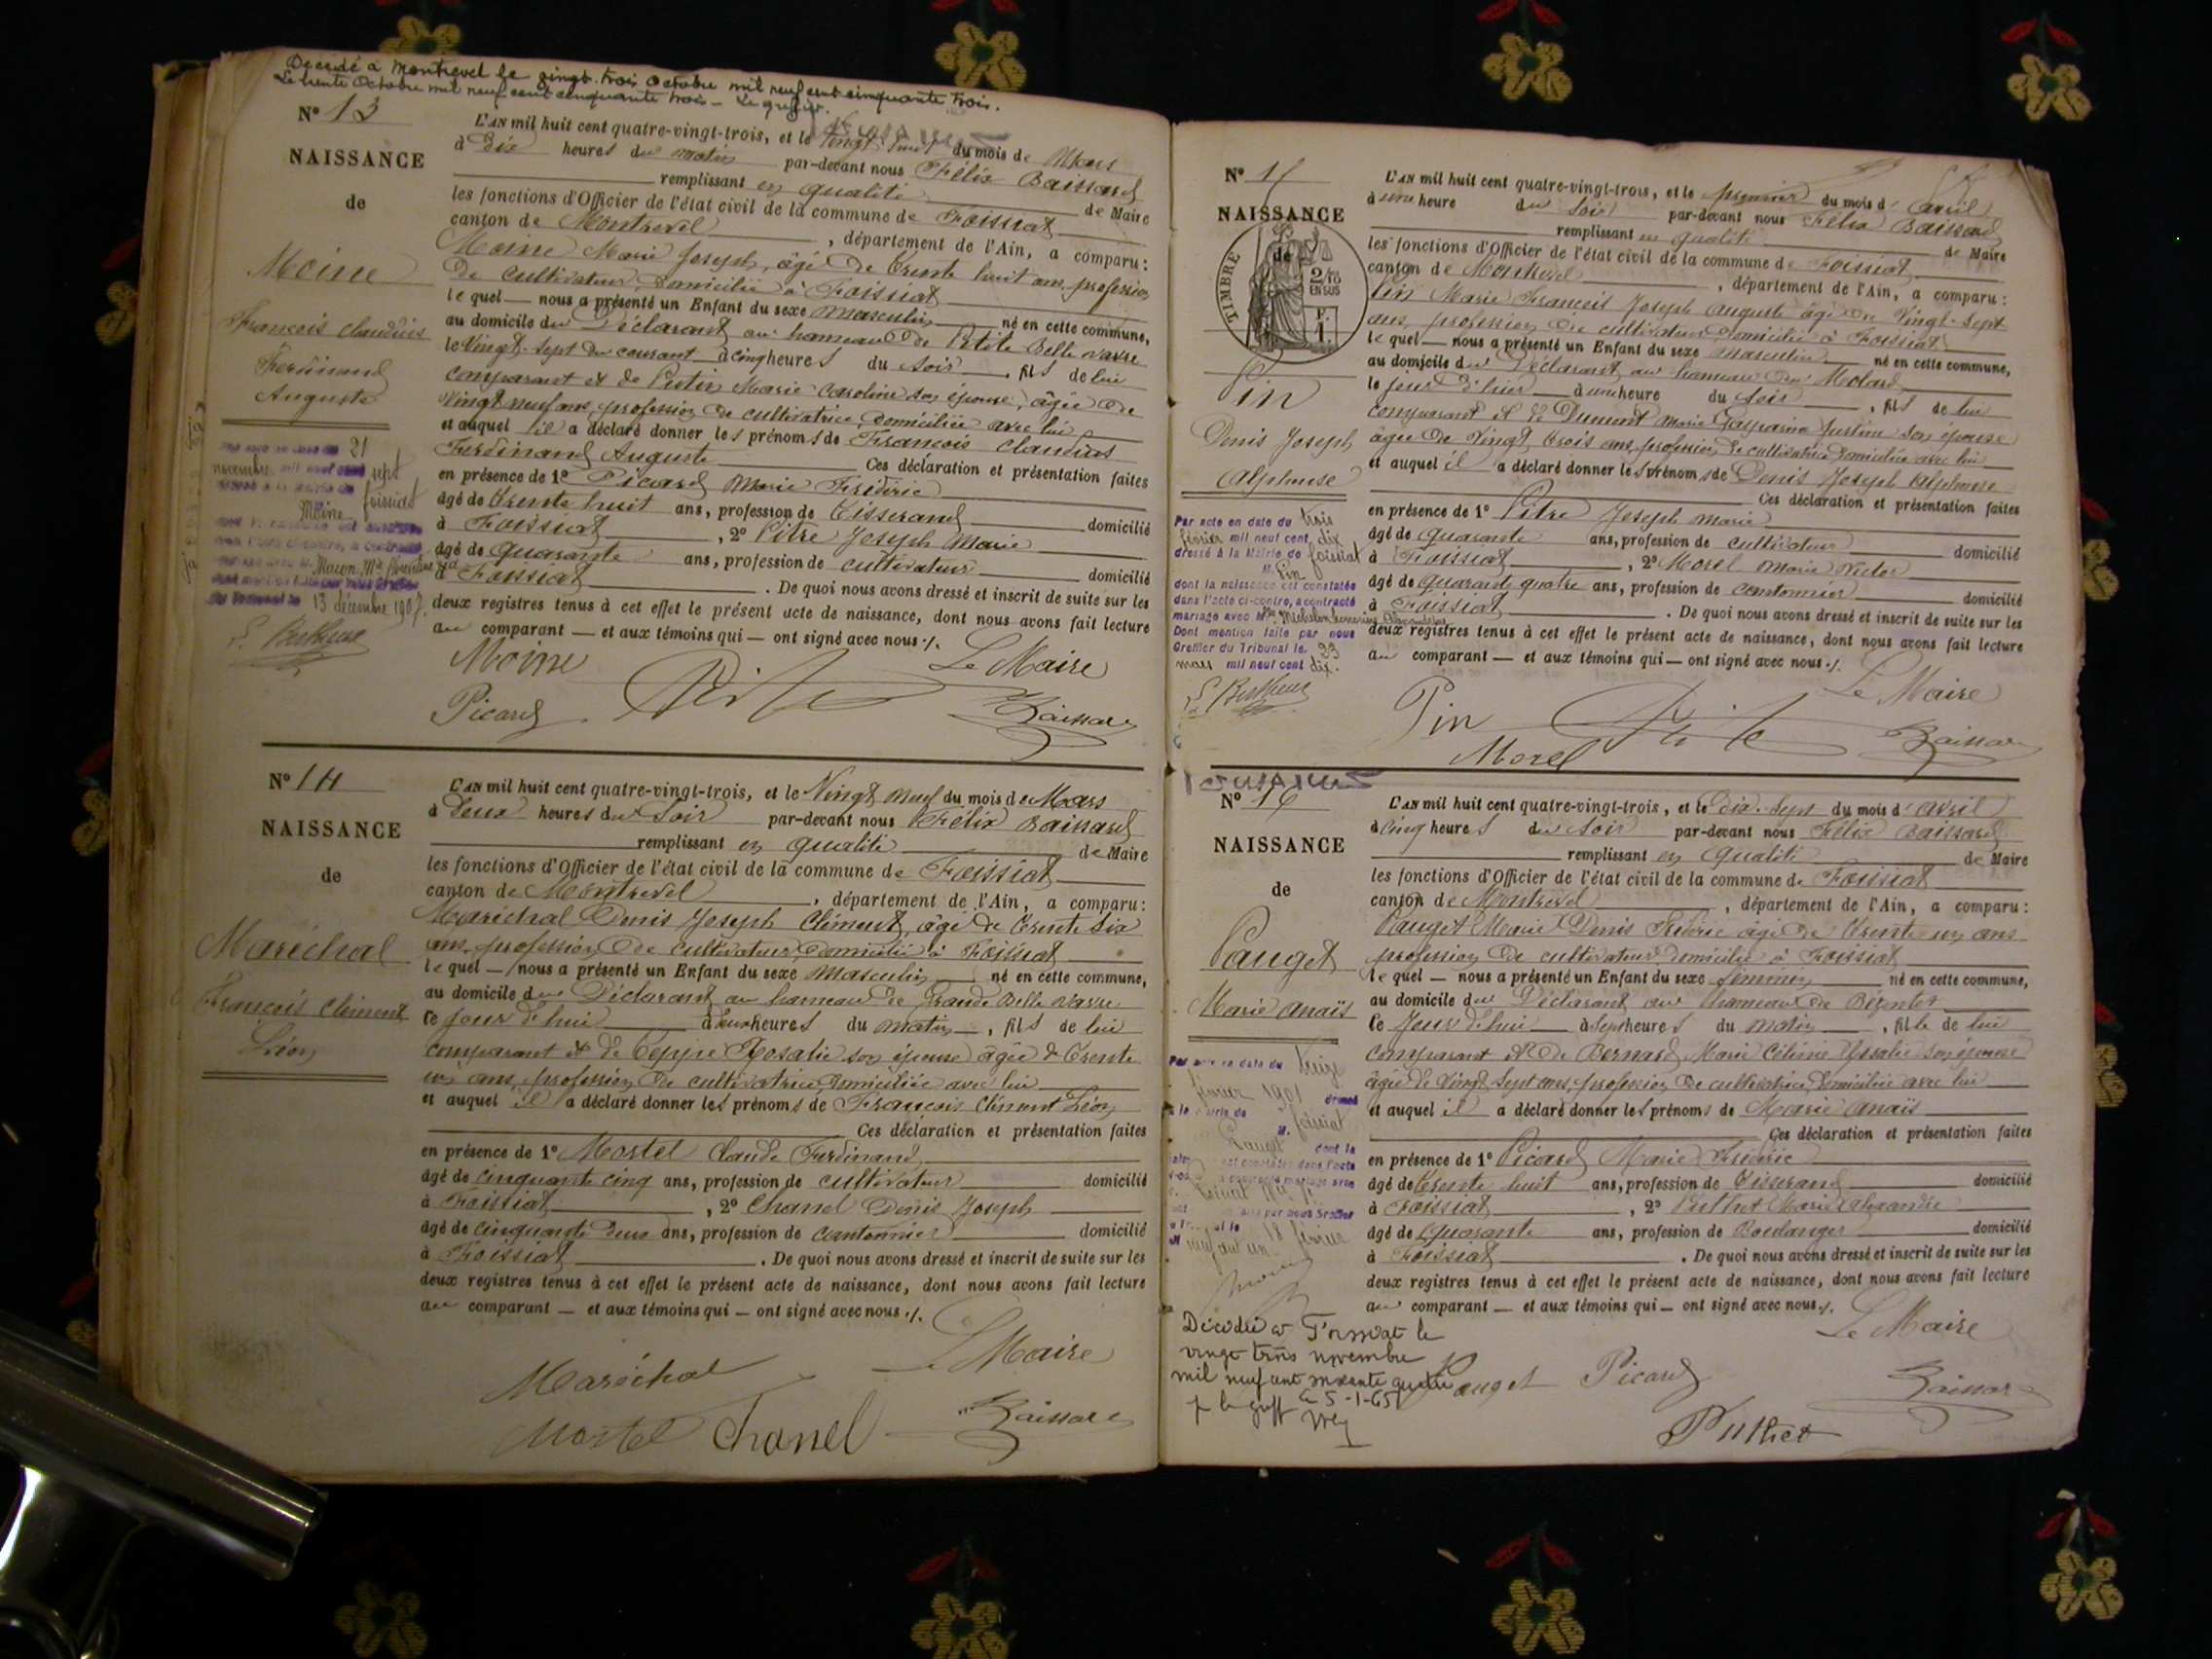 Décédé à Montrevel le vingt-trois octobre mil neuf cent cinquante trois.
Le trente Octobre mil neuf cent cinquante trois - Le greffier.
N° 13
NAISSANCE
de
Moine
François Claudius
Ferdinand
Auguste
21
novembre mil neuf cent sept
foissiat
Moine
13 décembre 1907.
L'AN mil huit cent quatre-vingt-trois, et le Vingt neuf du mois de Mars
à Dix heures du matin par-devant nous Félix Baissard
remplissant en qualité de Maire
les fonctions d'Officier de l'état civil de la commune de Foissiat
canton de Montrevel, département de l'Ain, a comparu:
Moine Marie Joseph, âgé de Trente huit ans, profession
de cultivateur, domicilié à Foissiat
lequel — nous a présenté un Enfant du sexe masculin né en cette commune,
au domicile du Déclarant au hameau de Petite Belle vavre
le Vingt-sept du courant à cinq heures du soir, fils de lui
comparant et de Marie Caroline son épouse, âgée de
Vingt neuf ans, profession de cultivatrice, domiciliée avec lui
et auquel il a déclaré donner les prénoms de François Claudius
Ferdinand Auguste Ces déclaration et présentation faites
en présence de 1° Picard Marie Frédéric
âgé de trente huit ans, profession de Tisserand domicilié
à Foissiat, 2° Pitre Joseph Marie
âgé de quarante ans, profession de cultivateur domicilié
à Foissiat. De quoi nous avons dressé et inscrit de suite sur les
deux registres tenus à cet effet le présent acte de naissance, dont nous avons fait lecture
au comparant — et aux témoins qui — ont signé avec nous ./.
Moine Le Maire
Picard Pitre Baissard
N° 14
NAISSANCE
de
Maréchal
François Clément
Léon
L'AN mil huit cent quatre-vingt-trois, et le Vingt neuf du mois de Mars
à Deux heures du Soir par-devant nous Félix Baissard
remplissant en qualité de Maire
les fonctions d'Officier de l'état civil de la commune de Foissiat
canton de Montrevel, département de l'Ain, a comparu:
Maréchal Denis Joseph Clément, âgé de Trente six
ans, profession de cultivateur, domicilié à Foissiat
lequel — nous a présenté un Enfant du sexe masculin né en cette commune,
au domicile du Déclarant au hameau de Grande Belle vavre
le jour d'hui à deux heures du matin, fils de lui
comparant et de Teppe Rosalie son épouse âgée de Trente
un ans, profession de cultivatrice, domiciliée avec lui
et auquel il a déclaré donner les prénoms de François Clément Léon
Ces déclaration et présentation faites
en présence de 1° Mortel Claude Ferdinand
âgé de cinquante cinq ans, profession de cultivateur domicilié
à Foissiat, 2° Chanel Denis Joseph
âgé de cinquante deux ans, profession de cantonnier domicilié
à Foissiat. De quoi nous avons dressé et inscrit de suite sur les
deux registres tenus à cet effet le présent acte de naissance, dont nous avons fait lecture
au comparant — et aux témoins qui — ont signé avec nous ./.
Le Maire
Maréchal
Mortel Chanel Baissard
N° 15
NAISSANCE
de
TIMBRE
2/10
EN SUS
F.
1.
Pin
Denis Joseph
Alphonse
Par acte en date du trois
février mil neuf cent dix
dressé à la Mairie de foissiat
M. Pin
dont la naissance est constatée
dans l'acte ci-contre, a contracté
mariage avec Mlle Michelon
Dont mention faite par nous
Greffier du Tribunal le 23
mars mil neuf cent dix.
L'AN mil huit cent quatre-vingt-trois, et le premier du mois d'Avril
à une heure du Soir par-devant nous Félix Baissard
remplissant en qualité de Maire
les fonctions d'Officier de l'état civil de la commune de Foissiat
canton de Montrevel, département de l'Ain, a comparu:
Pin Marie François Joseph Auguste âgé de Vingt-sept
ans, profession de cultivateur, domicilié à Foissiat
lequel — nous a présenté un Enfant du sexe masculin né en cette commune,
au domicile du Déclarant au hameau du Molard
le jour d'hier à une heure du soir, fils de lui
comparant et de Dumont Marie Gasparine Justine son épouse
âgée de Vingt trois ans, profession de cultivatrice, domiciliée avec lui
et auquel il a déclaré donner les prénoms de Denis Joseph Alphonse
Ces déclaration et présentation faites
en présence de 1° Pitre Joseph Marie
âgé de quarante ans, profession de cultivateur domicilié
à Foissiat, 2° Morel Marie Victor
âgé de quarante quatre ans, profession de cantonnier domicilié
à Foissiat. De quoi nous avons dressé et inscrit de suite sur les
deux registres tenus à cet effet le présent acte de naissance, dont nous avons fait lecture
au comparant — et aux témoins qui — ont signé avec nous ./.
Le Maire
Pin Pitre Baissard
Morel
N° 16
NAISSANCE
de
Pauget
Marie Anaïs
Par acte en date du treize
février 1901 dressé
à la Mairie de foissiat
M. Pauget dont la
18 février
Décédée à Foissiat le
vingt trois novembre
mil neuf cent soixante quatre
le 5-1-65
L'AN mil huit cent quatre-vingt-trois, et le Dix-sept du mois d'Avril
à cinq heures du Soir par-devant nous Félix Baissard
remplissant en qualité de Maire
les fonctions d'Officier de l'état civil de la commune de Foissiat
canton de Montrevel, département de l'Ain, a comparu:
Pauget Marie Denis Frédéric âgé de Trente un ans
profession de cultivateur, domicilié à Foissiat
lequel — nous a présenté un Enfant du sexe féminin né en cette commune,
au domicile du Déclarant au hameau de Bézentet
le Jour d'hui à sept heures du matin, fille de lui
comparant et de Bernard Marie Célinie Rosalie son épouse
âgée de Vingt sept ans, profession de cultivatrice, domiciliée avec lui
et auquel il a déclaré donner les prénoms de Marie Anaïs
Ces déclaration et présentation faites
en présence de 1° Picard Marie Frédéric
âgé de trente huit ans, profession de Tisserand domicilié
à Foissiat, 2° Puthet Marie Alexandre
âgé de quarante ans, profession de Boulanger domicilié
à Foissiat. De quoi nous avons dressé et inscrit de suite sur les
deux registres tenus à cet effet le présent acte de naissance, dont nous avons fait lecture
au comparant — et aux témoins qui — ont signé avec nous ./.
Le Maire
Pauget Picard Baissard
Puthet